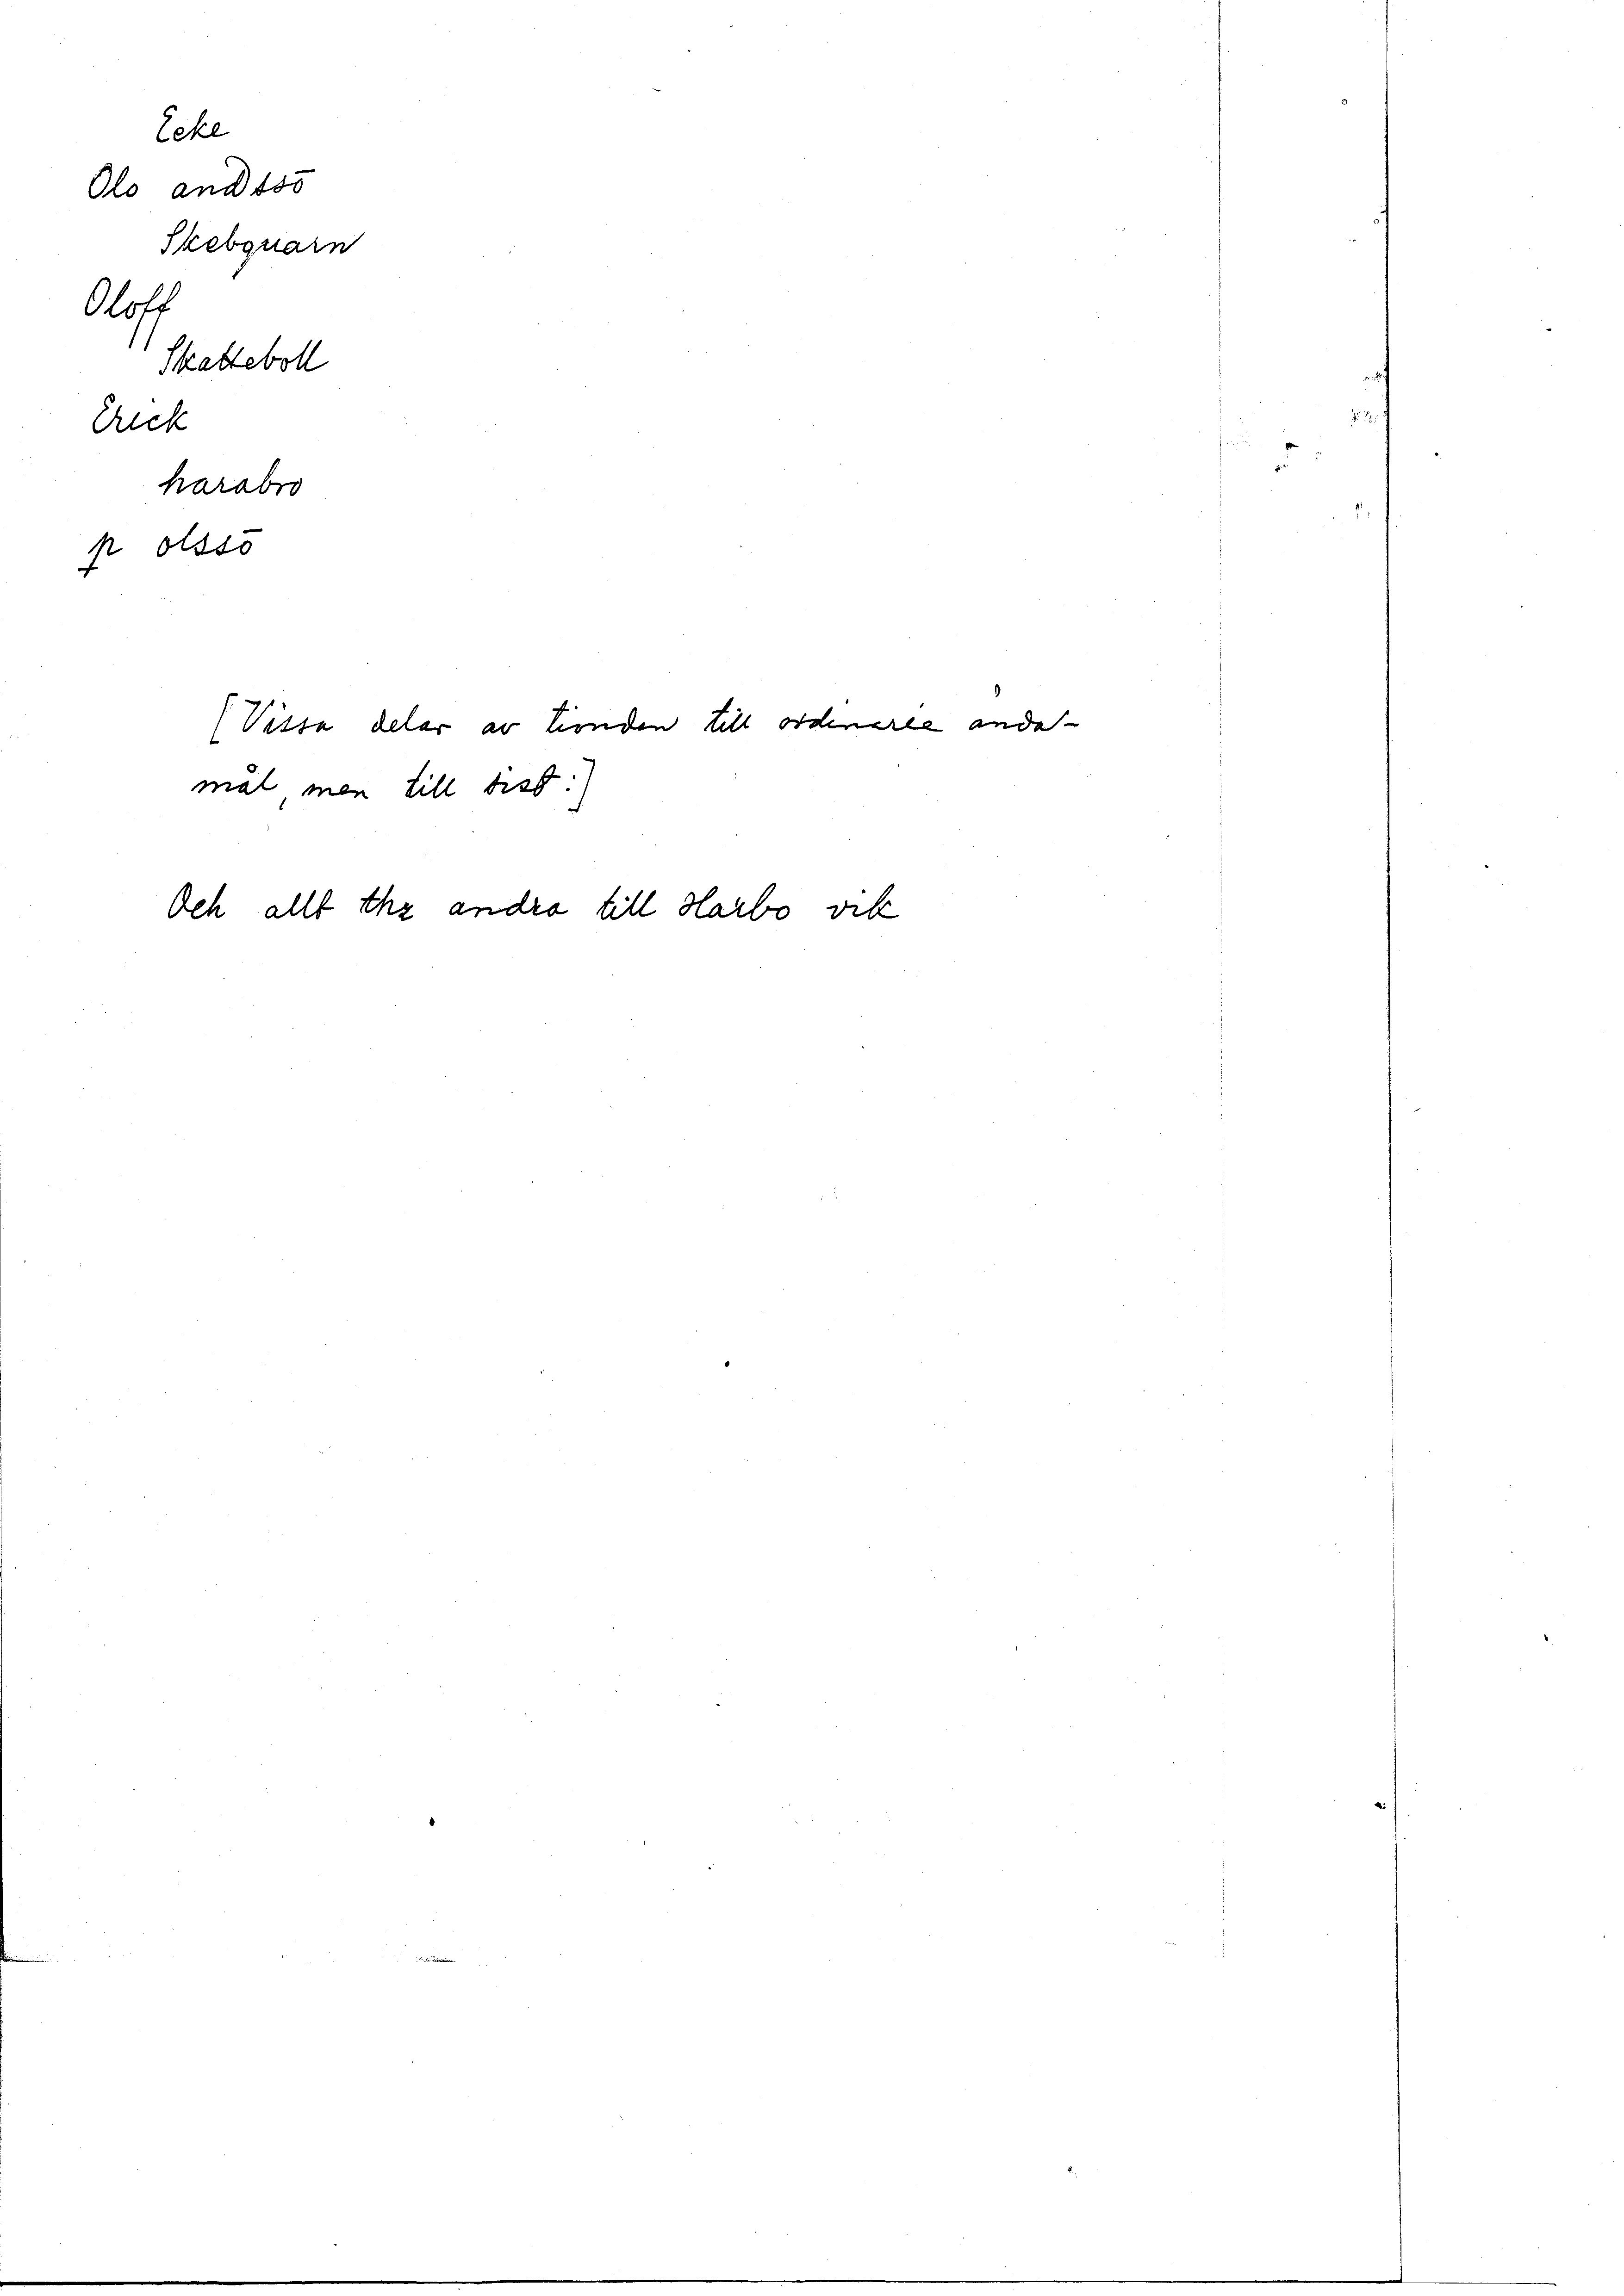 Ecke
Olo andssō
Skebquarn
Oloff
Skatteboll
Erick
harabro
p olssō
(Vissa delar av tionden till ordinarie ända-
mål, men till sist:)
Och allt thz andra till Harbo vik